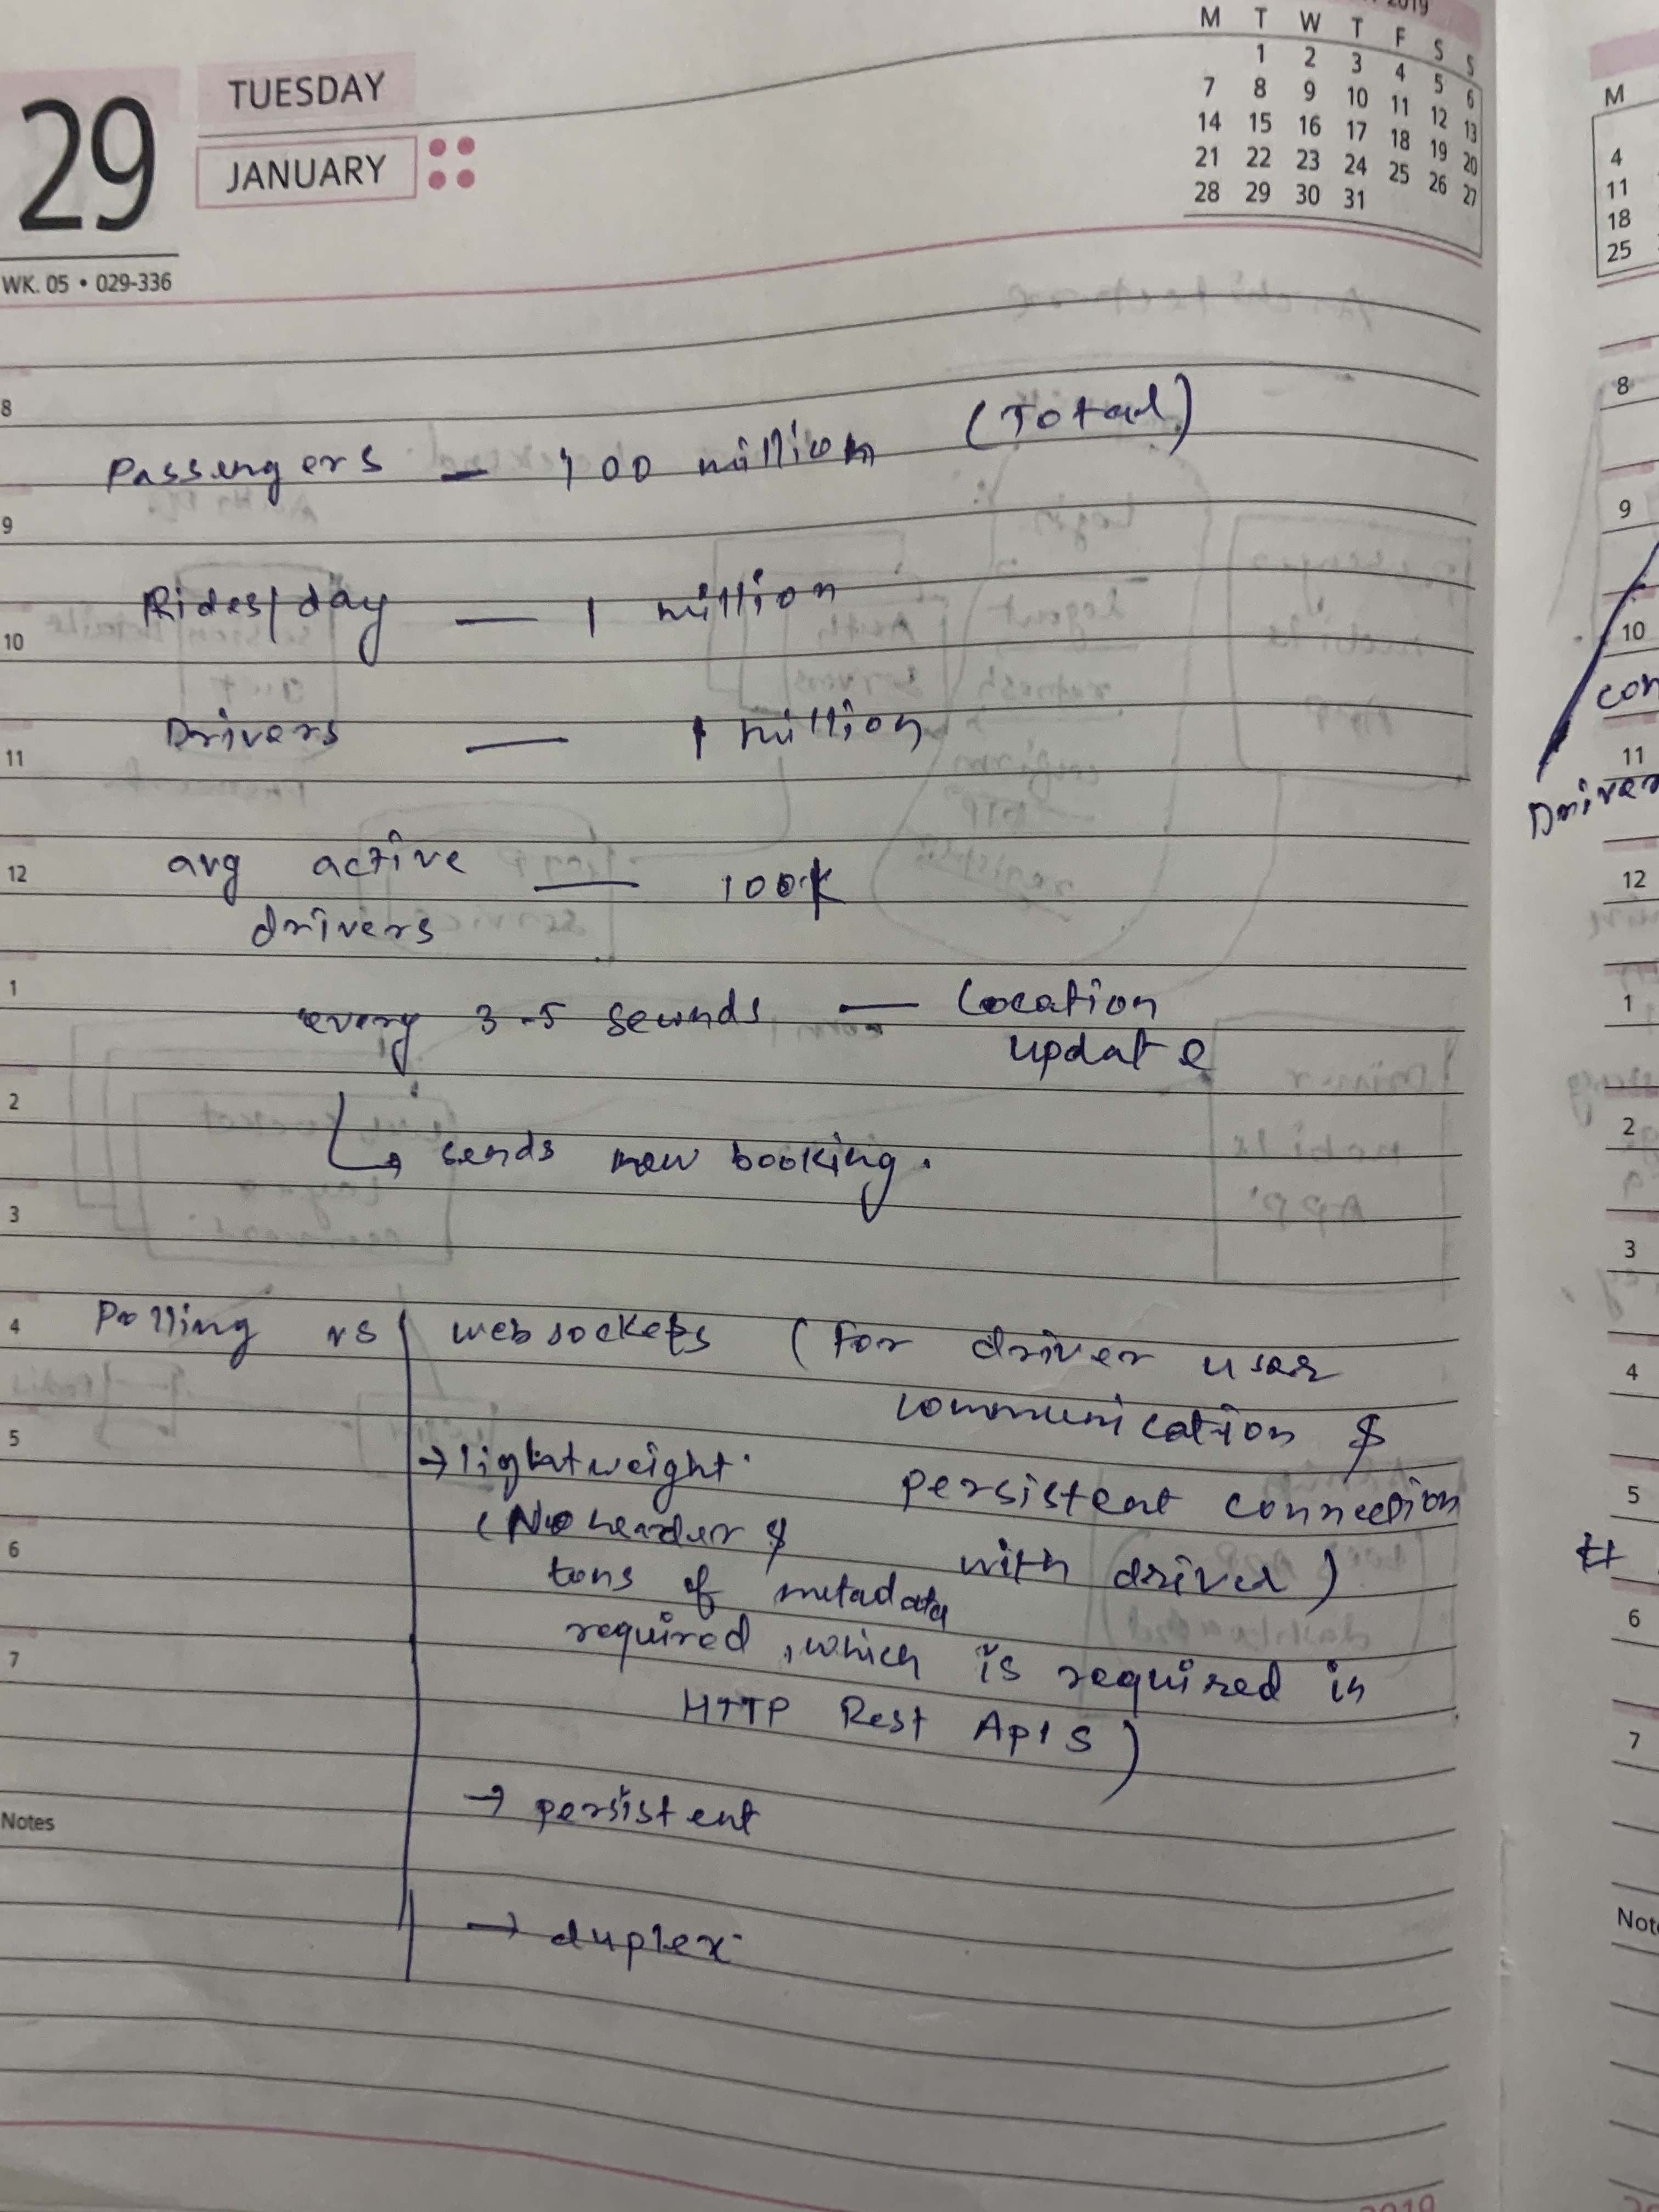 2019
M T W T F S S
1 2 3 4 5 6
7 8 9 10 11 12 13
14 15 16 17 18 19 20
21 22 23 24 25 26 27
28 29 30 31
29
TUESDAY
JANUARY
WK. 05 • 029-336
8
Passengers — 100 million (Total)
9
Rides/day — 1 million
10
Drivers — 1 million
11
avg active
12
drivers — 100K
1
every 3-5 seconds — Location
update
2
↳ sends new booking.
3
4
Polling vs websockets (For driver user
communication &
5
→ lightweight. persistent connection
(No header & with driver)
6
tons of metadata
required, which is required in
7
HTTP Rest APIS)
→ persistent
Notes
→ duplex
2019
M
4
11
18
25
8
9
10
11
Driver
12
1
2
3
4
5
#
6
7